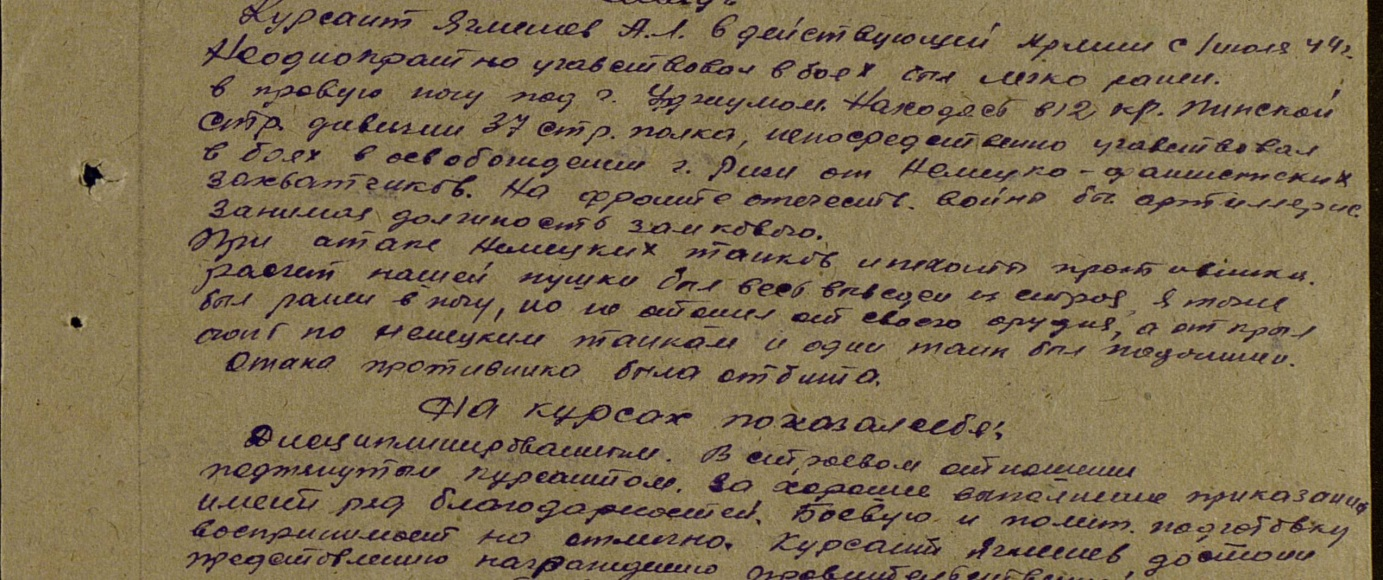 Курсант Ягмшев А.А. в действующей Армии с июля 44 г.
Неоднократно учавствовал в боях был легко ранен.
в правую ногу под г. Находясь в 12 кр. Пинской
стр. дивизии 37 стр. полка, непосредственно учавствовал
в боях в освобождении г. Риги от Немецко-фашистских
захватчиков. На фронте отечеств. войны был артилерис.
занимая должность замкового.
При атаке Немецких танков и пехоты противника.
расчет нашей пушки был весь выведен из строя, я тоже
был ранен в ногу, но не отошел от своего орудия, а открыл
огонь по немецким танкам и один танк был подбит.
Атака противника была отбита.
На курсах показал себя:
Дисциплинированным. В строевом отношении
подтянутым курсантом. За хорошие выполнение приказания
имеет ряд благодарностей. Боевую и полит. подготовку
воспринимает на отлично. Курсант достоин
представлению награждению